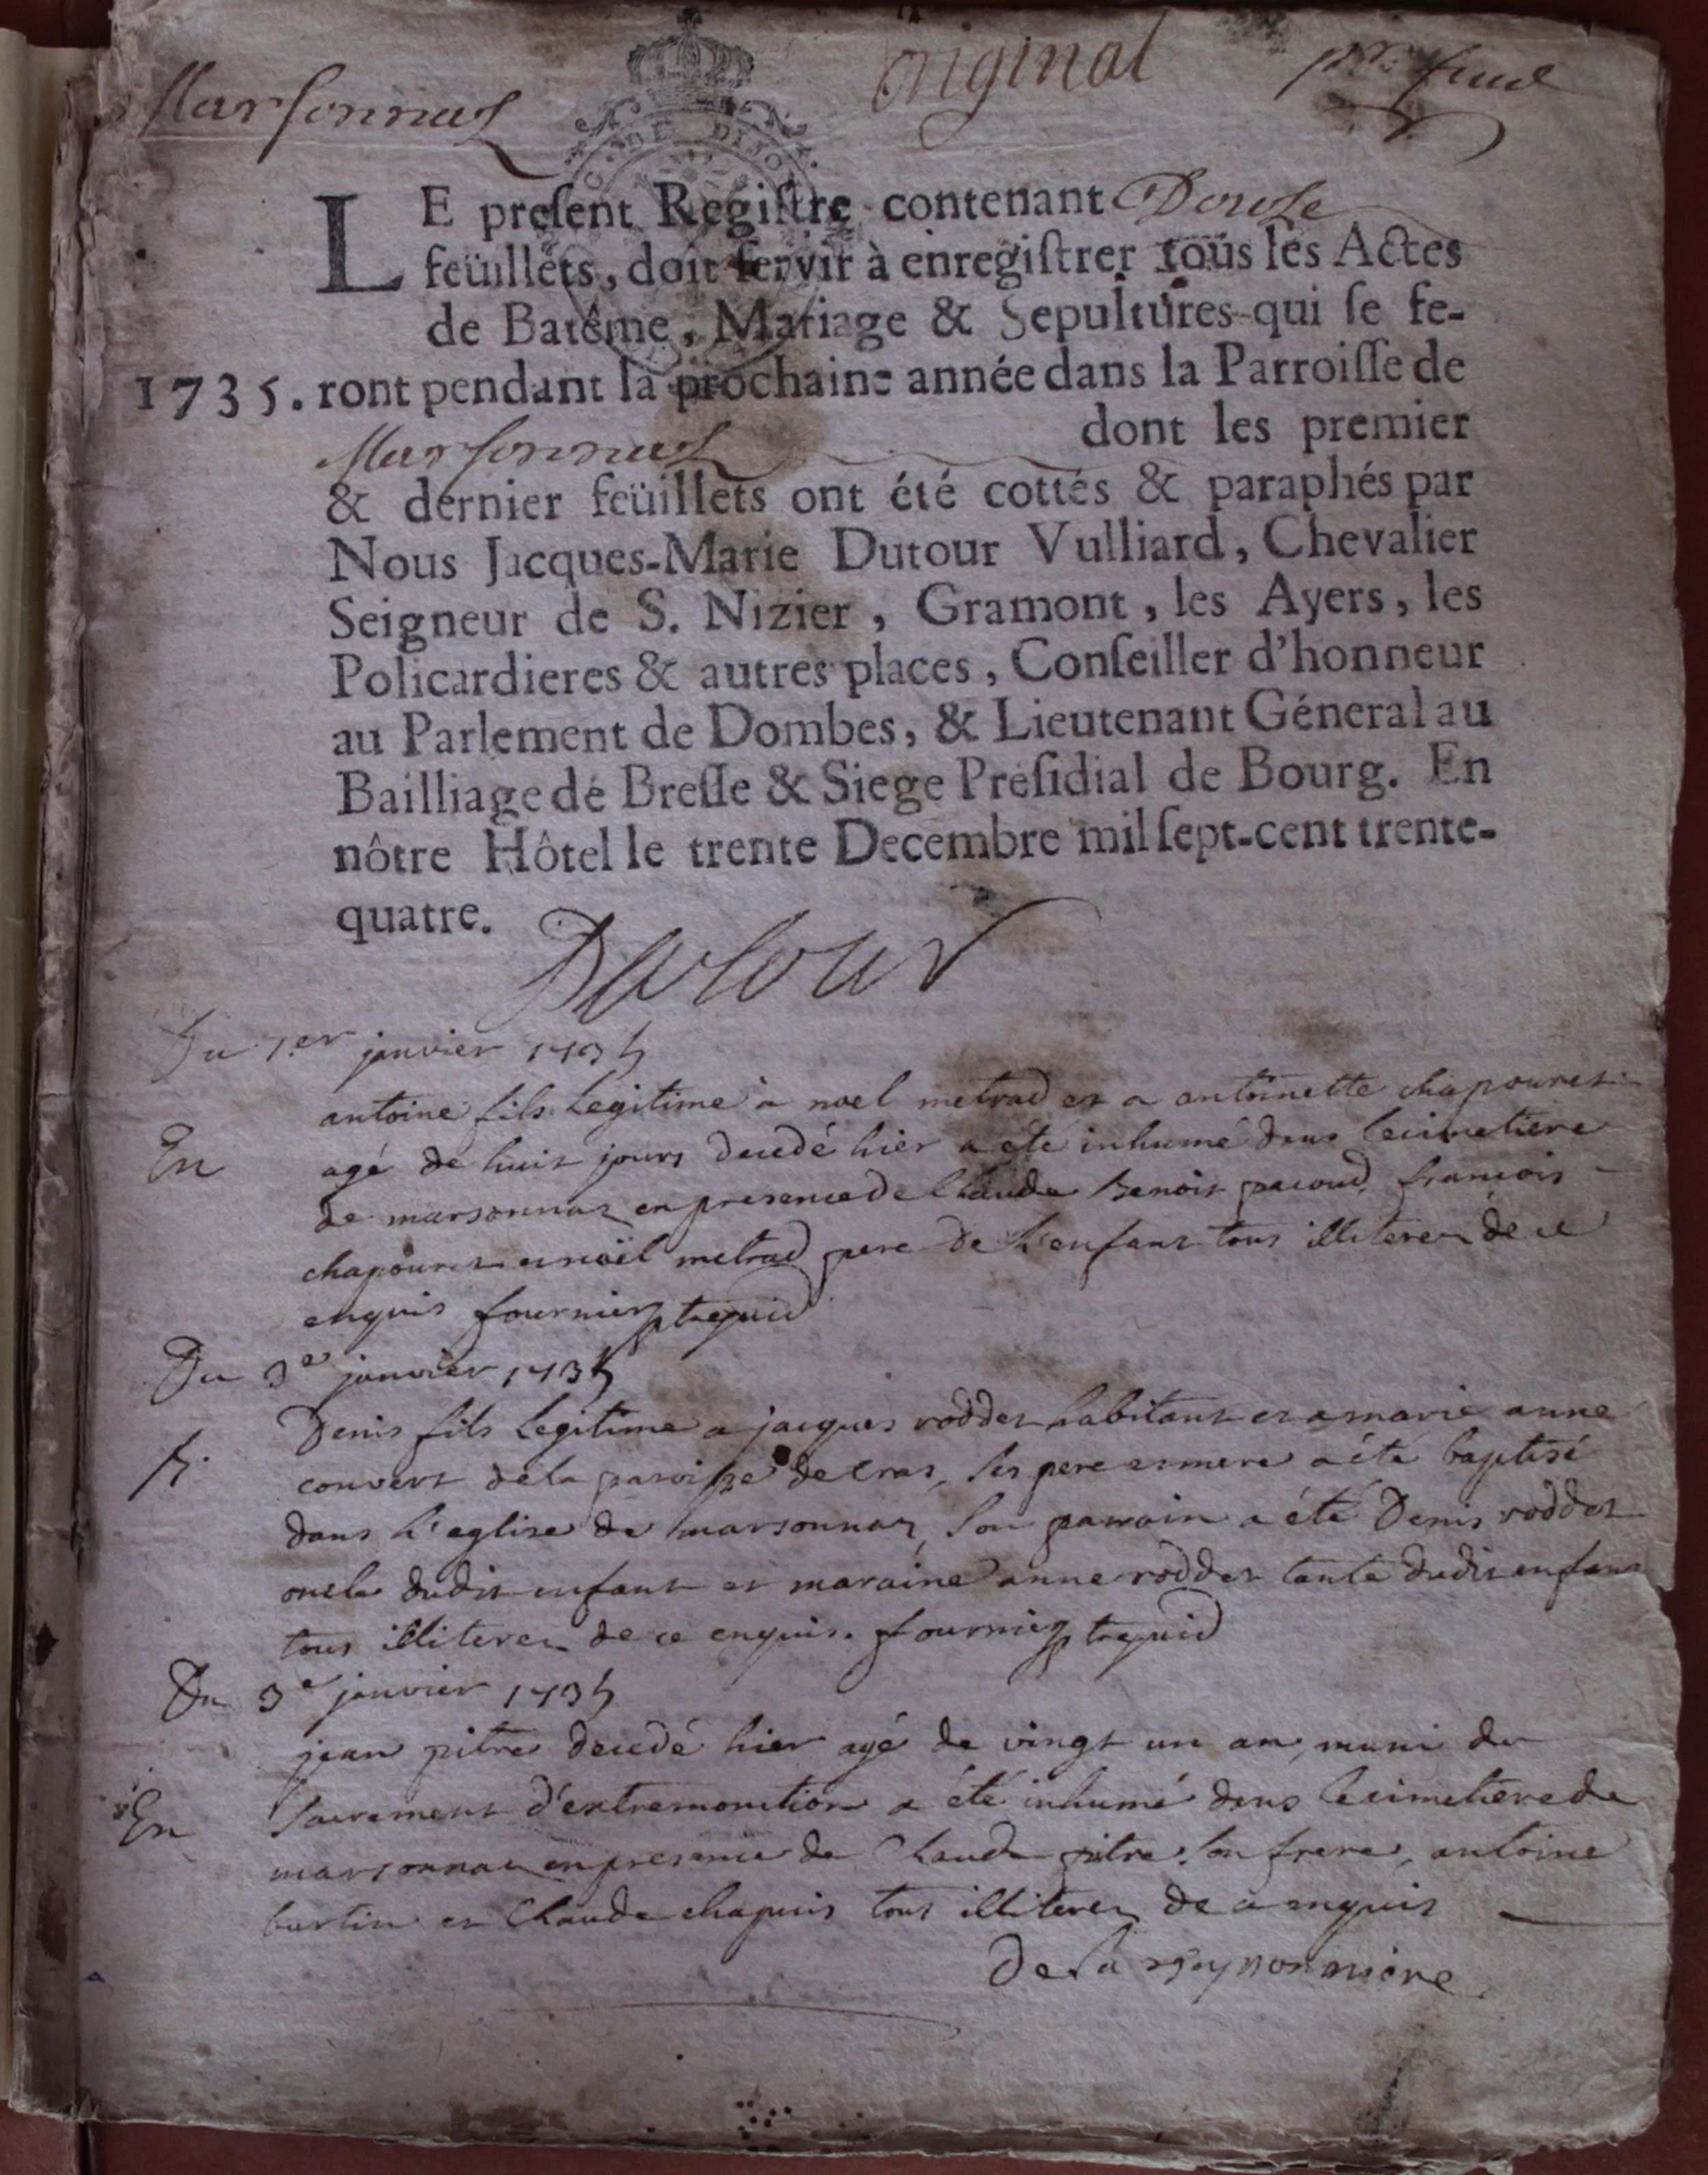 Marsonnas
original
LE preſent Regiſtre contenant Douze
feüillets, doit ſervir à enregiſtrer tous les Actes
de Batême, Mariage & Sepultures qui ſe fe-
1735. ront pendant la prochaine année dans la Parroiſſe de
Marsonnas dont les premier
& dernier feüillets ont été cottés & paraphés par
Nous Jacques-Marie Dutour Vulliard, Chevalier
Seigneur de S. Nizier, Gramont, les Ayers, les
Policardieres & autres places, Conſeiller d'honneur
au Parlement de Dombes, & Lieutenant Géneral au
Bailliage de Breſſe & Siege Préſidial de Bourg. En
nôtre Hôtel le trente Decembre mil ſept-cent trente-
quatre.
Dutour
Du 1er janvier 1735
antoine fils Legitime à noel metrad et a antoinette chapouret
En
agé de huit jours decedé hier a eté inhumé dans le cimetiere
de marsonnaz en presence de Claude Benoit pacoud, francois
chapouret et noël metrad pere de L'enfant tous illiterez de ce
enquis fournier
Du 3e janvier 1735
Denis fils Legitime a jacques roddet habitant et a marie anne
B.
convert de la paroisse de Cras, ses pere et mere a été baptisé
dans L'eglise de marsonnaz, son parrain a été Denis roddet
oncle dudit enfant et maraine anne roddet tante dudit enfant
tous illiterez de ce enquis. fournier
Du 3e janvier 1735
jean pitre decedé hier agé de vingt un an, muni du
sacrement d'extremonction a été inhumé dans le cimetiere de
En
marsonnaz en presence de Claude pitre son frere, antoine
burtin et Claude chapuis tous illiterez de ce enquis